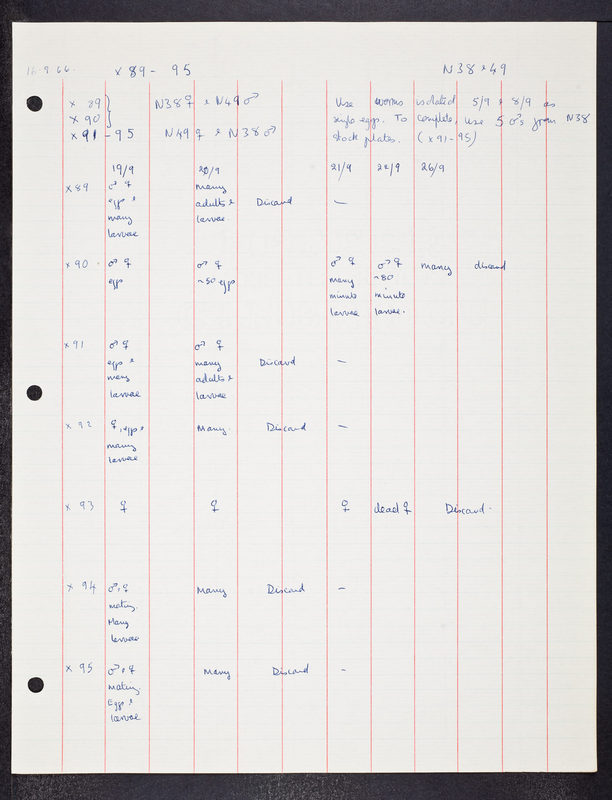 16.9.66. x 89 - 95 N38 & 49
x 89 } N38♀ & N49♂ Use worms isolated 5/9 & 8/9 as
x 90 } single eggs. To complete, use 5 ♂s from N38
x 91 - 95 N49 ♀ & N38 ♂ stock plates. (x91-95)
19/9 20/9 21/9 22/9 26/9
x 89 ♂ ♀ many
eggs & adults & Discard —
many larvae
larvae
x 90 ♂ ♀ ♂ ♀ ♂ ♀ ♂ ♀ many discard
eggs ~50 eggs many ~80
minute minute
larvae larvae.
x 91 ♂ ♀ ♂ ♀
eggs & many Discard —
many adults &
larvae larvae
x 92 ♀, eggs & Many. Discard —
many
larvae
x 93 ♀ ♀ ♀ dead ♀ Discard.
x 94 ♂ & ♀ Many Discard —
mating.
Many
larvae
x 95 ♂ & ♀ Many Discard -
Mating
Eggs &
larvae